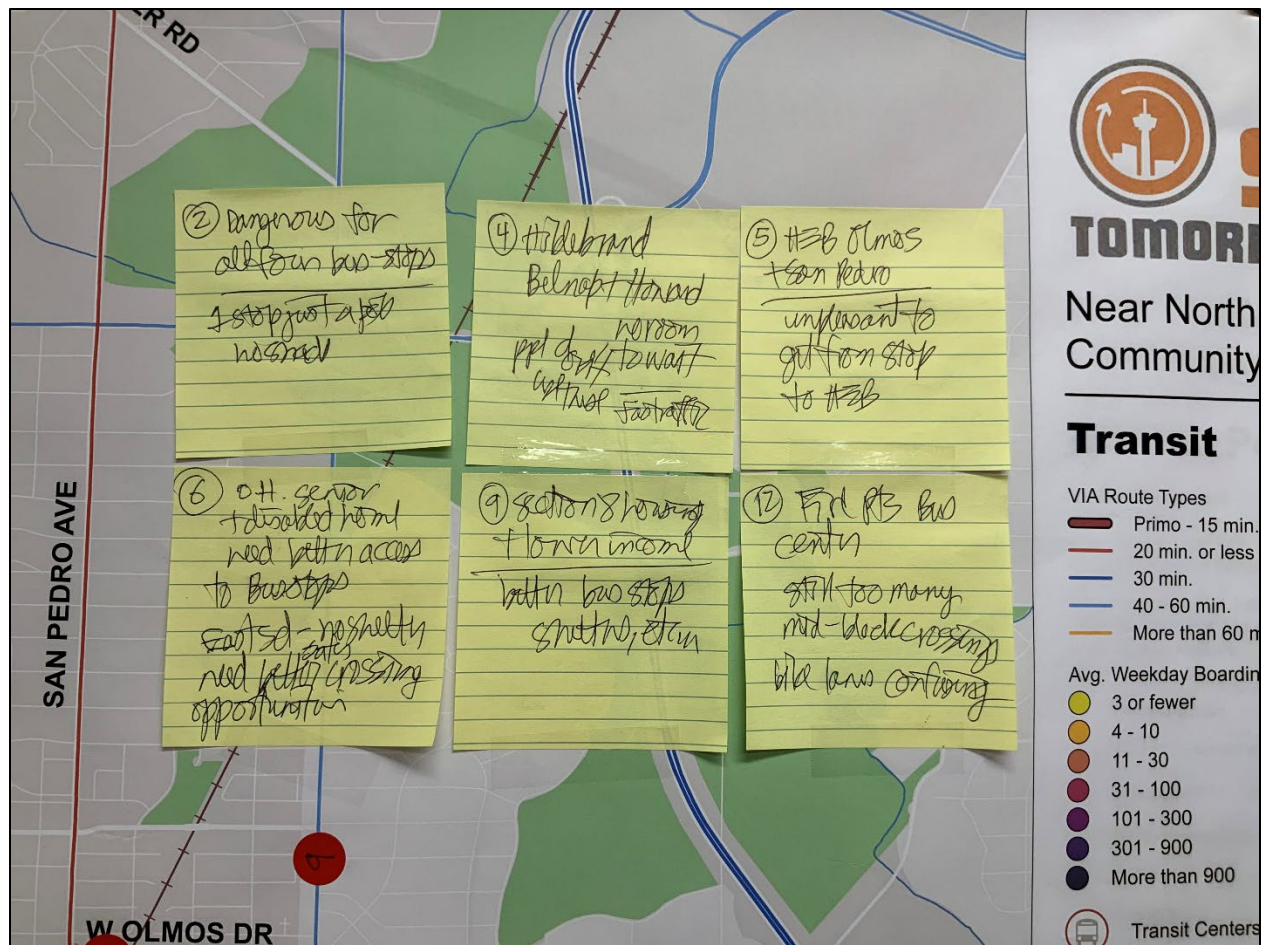 ER RD
② Dangerous for
all four bus-stops
1 stop just a pole
no shade
④ Hildebrand
Belnap + Howard
no room
ppl to wait
Foot traffic
⑤ HEB Olmos
+ San Pedro
unpleasant to
get from stop
to HEB
⑥ O.H. senior
+ disabled home
need better access
to Bus stops
- no shelter
safer
need better crossing
opportunities
⑨ section 8 housing
+ lower income
better bus stops
shelters, etc
⑫ Bus
center
still too many
mid-block crossings
bike lanes confusing
SAN PEDRO AVE
9
W OLMOS DR
TOMOR
Near North
Community
Transit
VIA Route Types
Primo - 15 min.
20 min. or less
30 min.
40 - 60 min.
More than 60 m
Avg. Weekday Boardin
3 or fewer
4 - 10
11 - 30
31 - 100
101 - 300
301 - 900
More than 900
Transit Centers